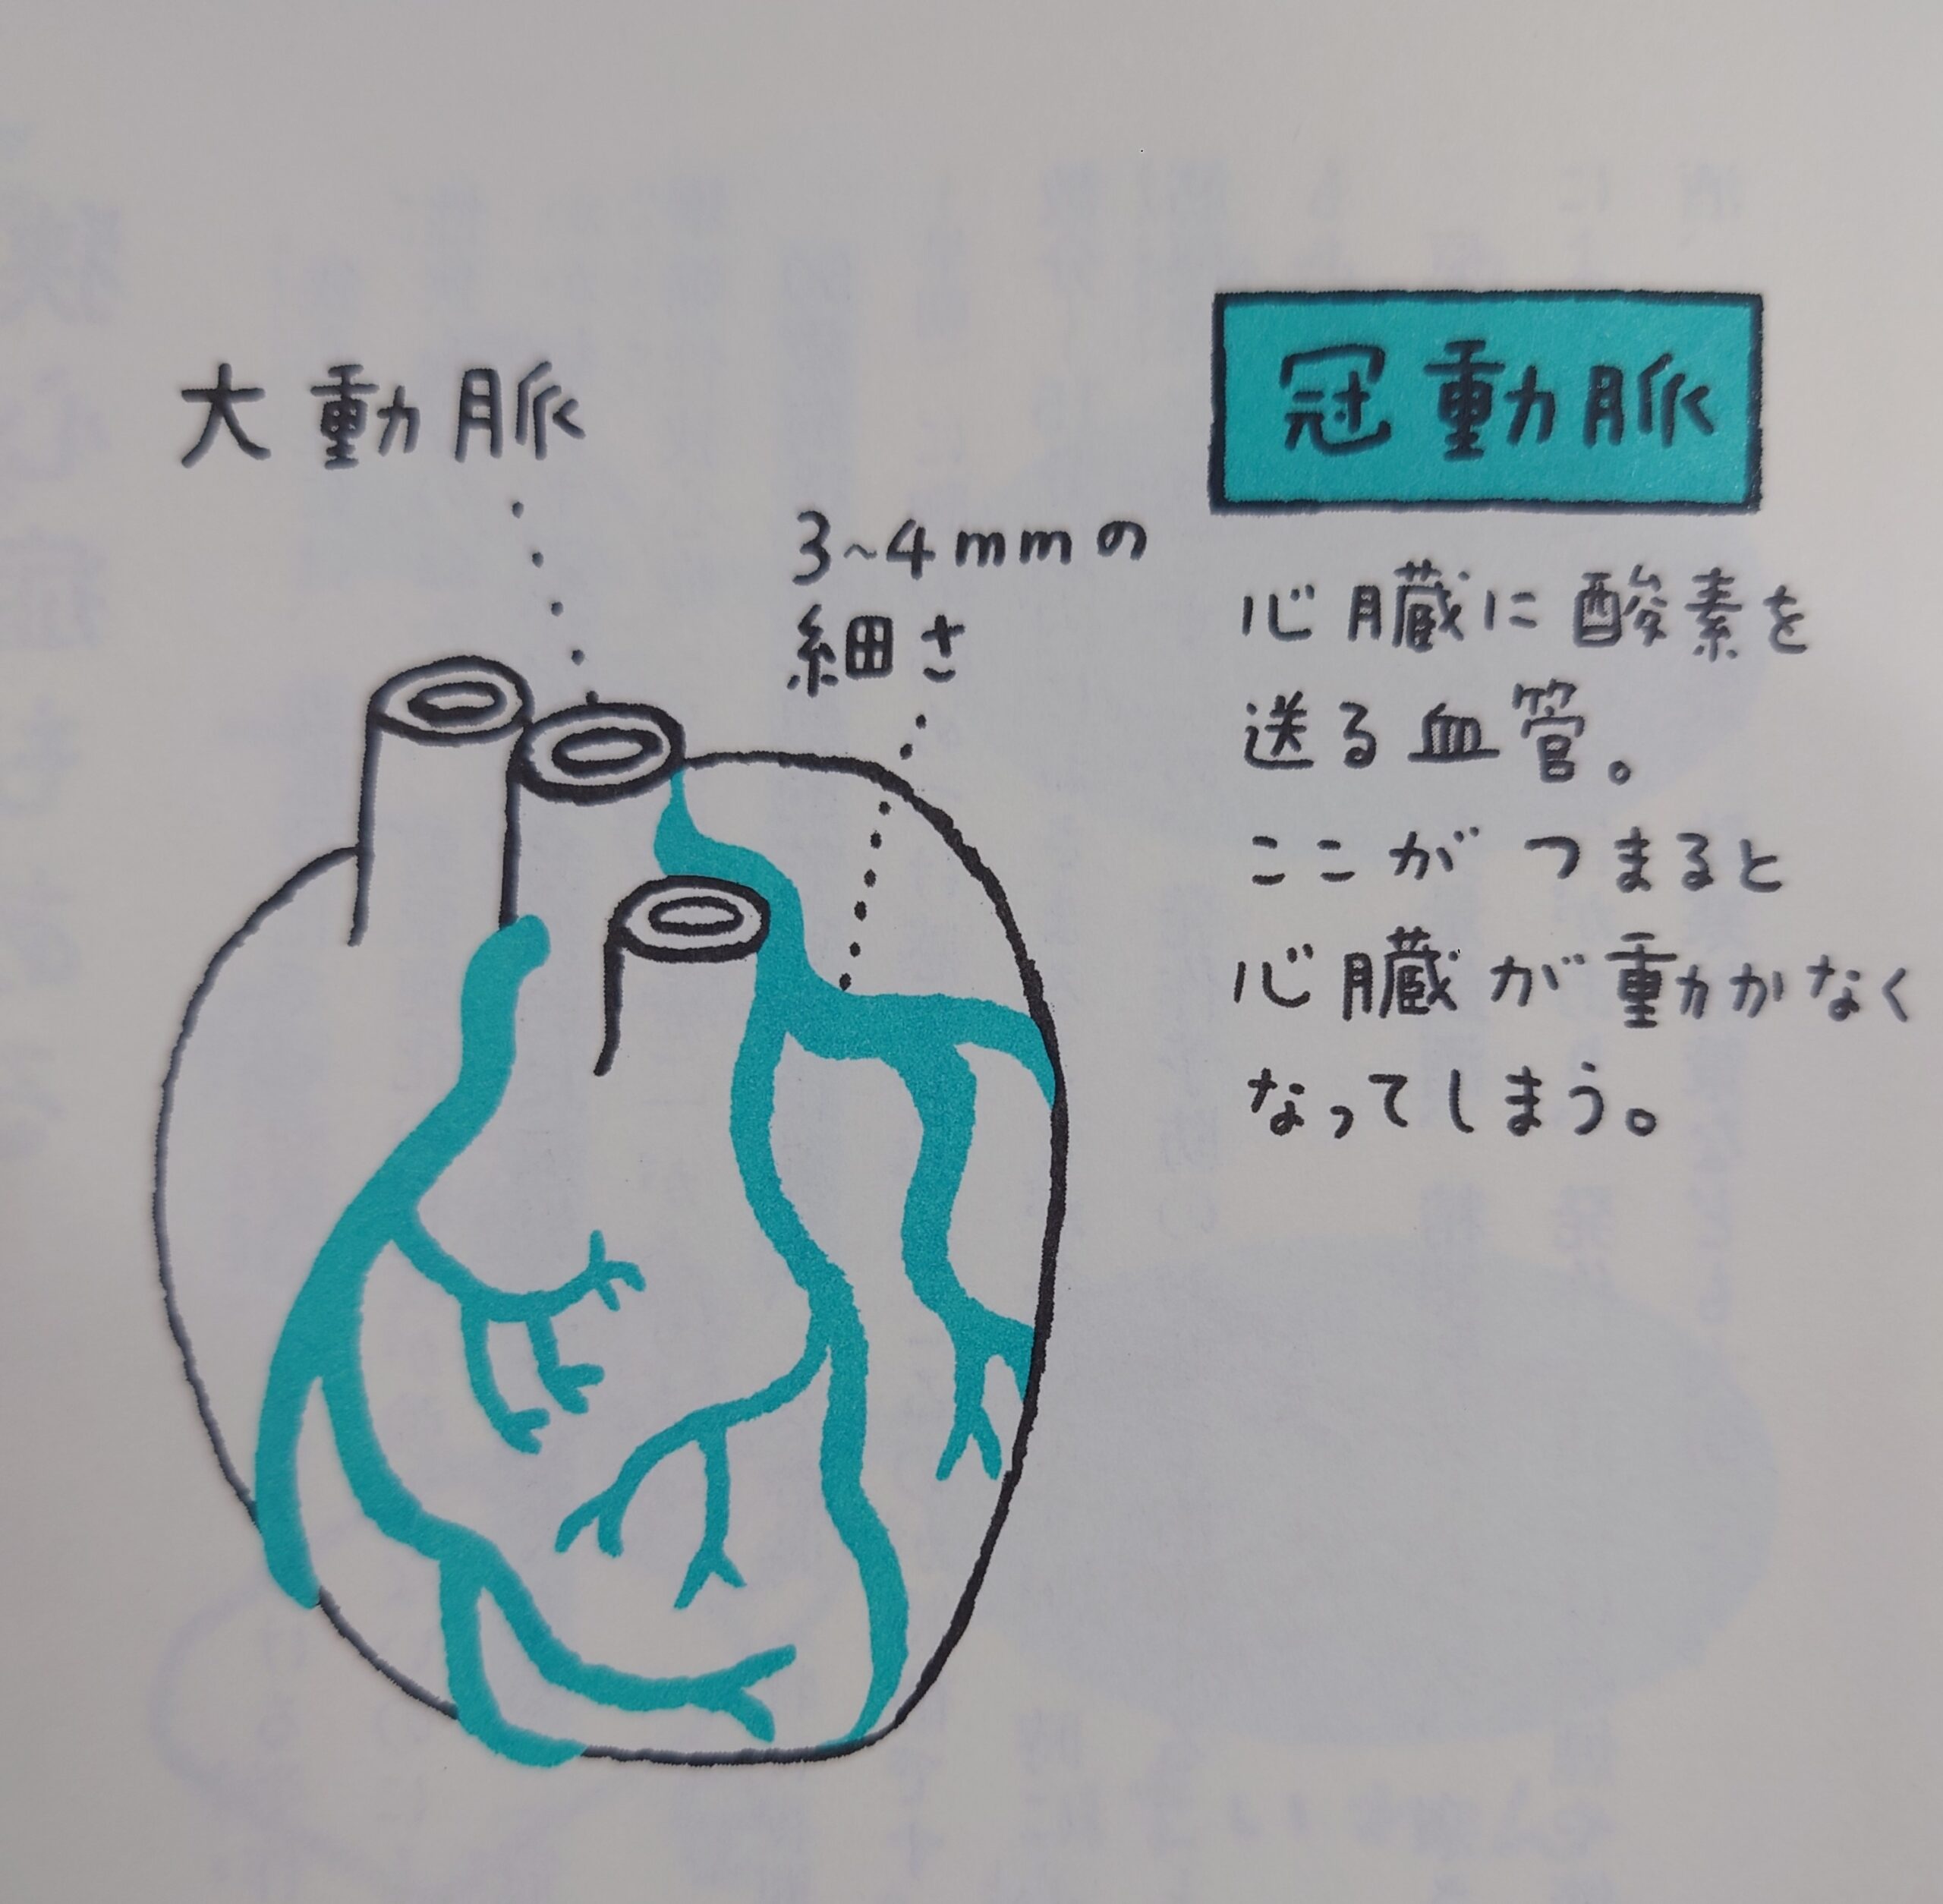 冠動脈
大動脈
3~4mmの
細さ
心臓に酸素を
送る血管。
ここがつまると
心臓が動かなく
なってしまう。